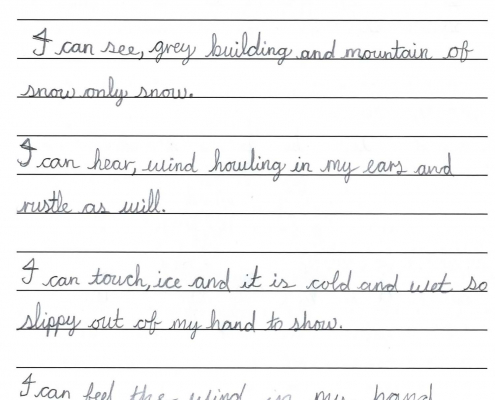 I can see, grey building and mountain of
snow only snow.
I can hear, wind howling in my ears and
rustle as will.
I can touch, ice and it is cold and wet so
slippy out of my hand to show.
I can feel the wind in my hand